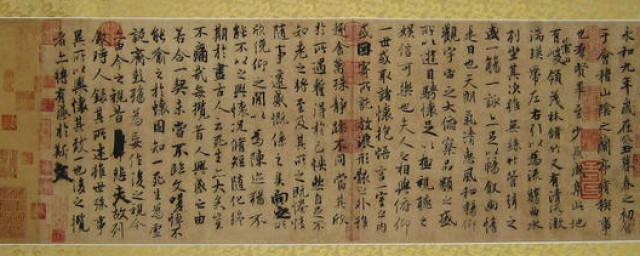 永和九年歲在癸丑暮春之初會
于會稽山陰之蘭亭脩稧事
也群賢畢至少長咸集此地
有崇山峻領茂林脩竹又有清流激
湍暎帶左右引以為流觴曲水
列坐其次雖無絲竹管弦之
盛一觴一詠亦足以暢叙幽情
是日也天朗氣清惠風和暢仰
觀宇宙之大俯察品類之盛
所以遊目騁懷足以極視聽之
娛信可樂也夫人之相與俯仰
一世或取諸懷抱悟言一室之內
或因寄所託放浪形骸之外雖
趣舍萬殊靜躁不同當其欣
於所遇暫得於己快然自足不
知老之將至及其所之既惓情
隨事遷感慨係之矣向之所
欣俛仰之閒以為陳迹猶不
能不以之興懷況脩短隨化終
期於盡古人云死生亦大矣豈
不痛哉每攬昔人興感之由
若合一契未嘗不臨文嗟悼不
能喻之於懷固知一死生為虛
誕齊彭殤為妄作後之視今
亦由今之視昔悲夫故列
叙時人錄其所述雖世殊事
異所以興懷其致一也後之攬
者亦將有感於斯文